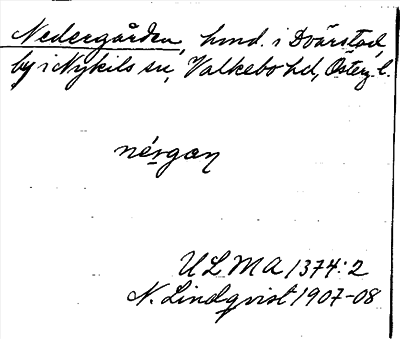 Nedergården, hmd. i Dvärstad,
by i Nykils sn, Valkebo hd, Österg. l.
nérgaɳ
ULMA 1374:2
N. Lindqvist 1907-08